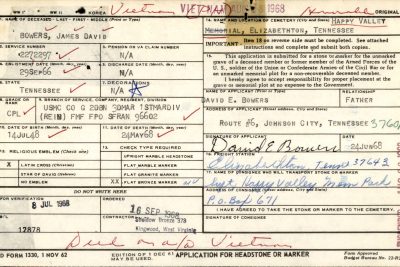 KOREA Vietnam VIETNAM 1968
1. NAME OF DECEASED LAST - FIRST - MIDDLE (Print or Type)
BOWERS, JAMES DAVID
14. NAME AND LOCATION OF CEMETERY (City and State)
HAPPY VALLEY
MEMORIAL, ELIZABETHTON, TENNESSEE
2. SERVICE NUMBER
2272297
9. PENSION OR VA CLAIM NUMBER
N/A
Item 18 on reverse side must be completed. See attached
instructions and complete and submit both copies.
3. ENLISTMENT DATE
29Sep66
10. DISCHARGE DATE
N/A
15. This application is submitted for a stone or marker for the unmarked
grave of a deceased member or former member of the Armed Forces of the
U. S., soldier of the Union or Confederate Armies of the Civil War or for
an unmarked memorial plot for a non-recoverable deceased member.
I hereby agree to accept responsibility for proper placement at the
grave or memorial plot at no expense to the Government.
4. STATE
TENNESSEE
DECORATIONS
N/A
5. GRADE
CPL
8. BRANCH OF SERVICE, COMPANY, REGIMENT, DIVISION
USMC CO G 2DBN 3DMAR 1STMARDIV
(REIN) FMF FPO SFRAN 96602
DAVID E. BOWERS
RELATIONSHIP
FATHER
ROUTE #6, JOHNSON CITY, TENNESSEE 37601
11. DATE OF BIRTH
14JUL48
12. DATE OF DEATH
24MAY68
SIGNATURE OF APPLICANT
David E. Bowers
DATE
24JUN68
RELIGIOUS EMBLEM
X LATIN CROSS (Christian)
STAR OF DAVID (Jewish)
NO EMBLEM
13. CHECK TYPE REQUIRED
UPRIGHT MARBLE HEADSTONE
FLAT MARBLE MARKER
FLAT GRANITE MARKER
X FLAT BRONZE MARKER
16. FREIGHT STATION
Elizabethton Tenn 37643
17. NAME OF CONSIGNEE WHO WILL TRANSPORT STONE OR MARKER
Supt. Happy Valley Mem Park
P.O. Box 671
DO NOT WRITE HERE
FOR VERIFICATION
8 JUL 1968
12878
ORDERED
16 SEP 1968
Shallow Bronze
Kingwood, West Virginia
I HAVE AGREED TO TAKE THE STONE OR MARKER TO THE CEMETERY.
SIGNATURE OF CONSIGNEE
DD FORM 1330, 1 NOV 62
EDITION OF 1 DEC 61 MAY BE USED.
APPLICATION FOR HEADSTONE OR MARKER
Form Approved
Died Vietnam